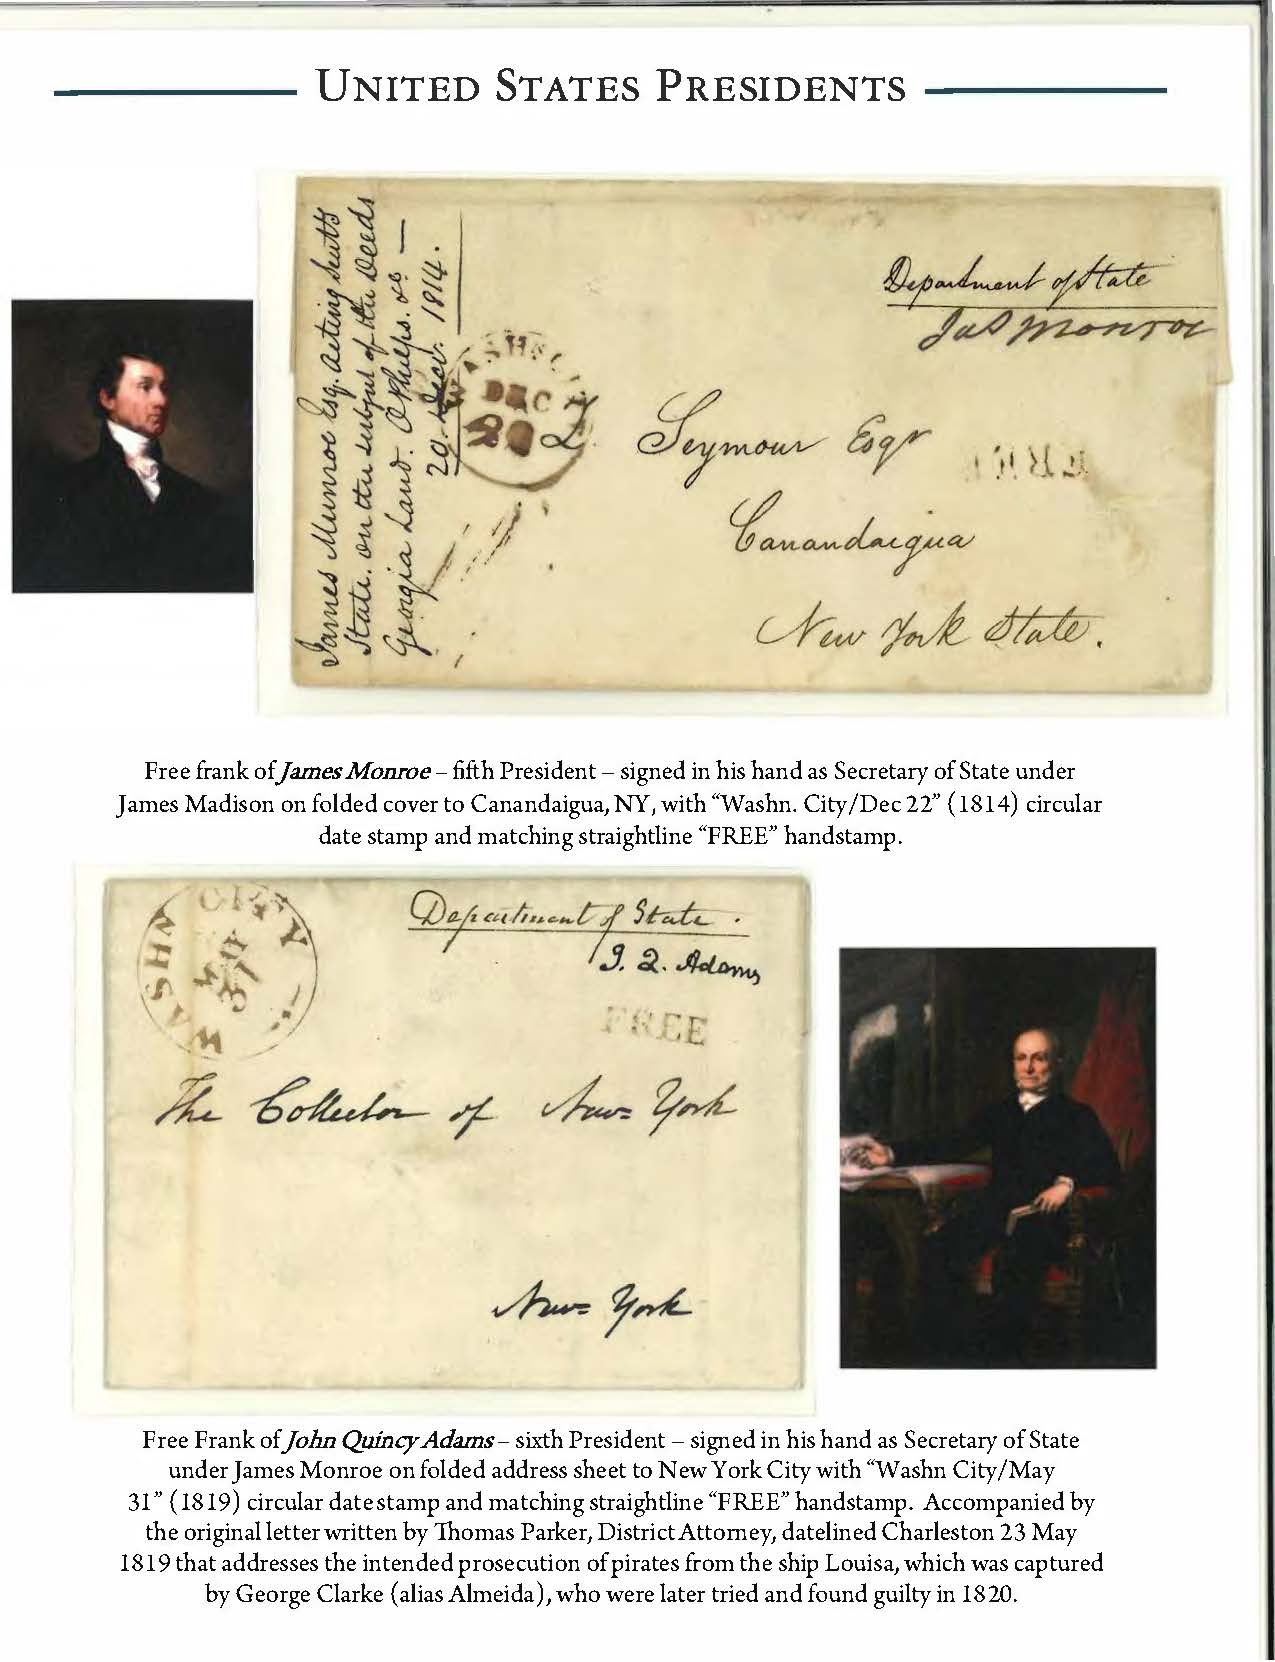 UNITED STATES PRESIDENTS
James Munroe Esq. Acting Secty
State. on the subject of the Deeds
Georgia Land. O Phelps. &c —
20. Decr. 1814.
WASHN. CITY
DEC
22
Department of State
Jas Monroe
Seymour Esqr
FREE
Canandaigua
New York State.
Free frank of James Monroe – fifth President – signed in his hand as Secretary of State under
James Madison on folded cover to Canandaigua, NY, with “Washn. City/Dec 22” (1814) circular
date stamp and matching straightline “FREE” handstamp.
WASHN CITY
MAY
31
Department of State.
J. Q. Adams
FREE
The Collector of New= York
New= York
Free Frank of John Quincy Adams – sixth President – signed in his hand as Secretary of State
under James Monroe on folded address sheet to New York City with “Washn City/May
31” (1819) circular datestamp and matching straightline “FREE” handstamp. Accompanied by
the original letter written by Thomas Parker, District Attorney, datelined Charleston 23 May
1819 that addresses the intended prosecution of pirates from the ship Louisa, which was captured
by George Clarke (alias Almeida), who were later tried and found guilty in 1820.